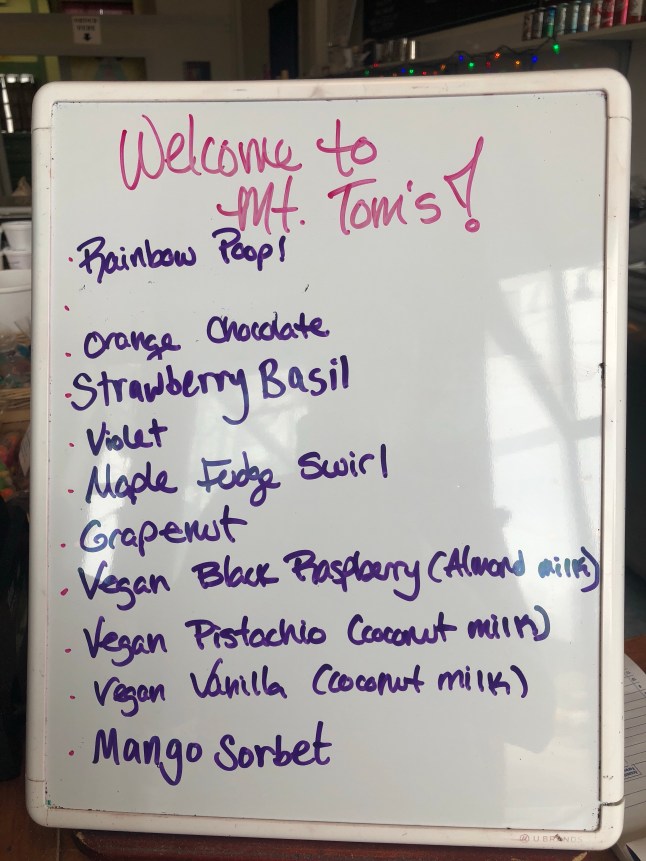 ORDER
HERE
Welcome to
Mt. Tom's!
· Rainbow Poop!
·
· Orange Chocolate
· Strawberry Basil
· Violet
· Maple Fudge Swirl
· Grapenut
· Vegan Black Raspberry (Almond milk)
· Vegan Pistachio (coconut milk)
· Vegan Vanilla (coconut milk)
· Mango Sorbet
U BRANDS